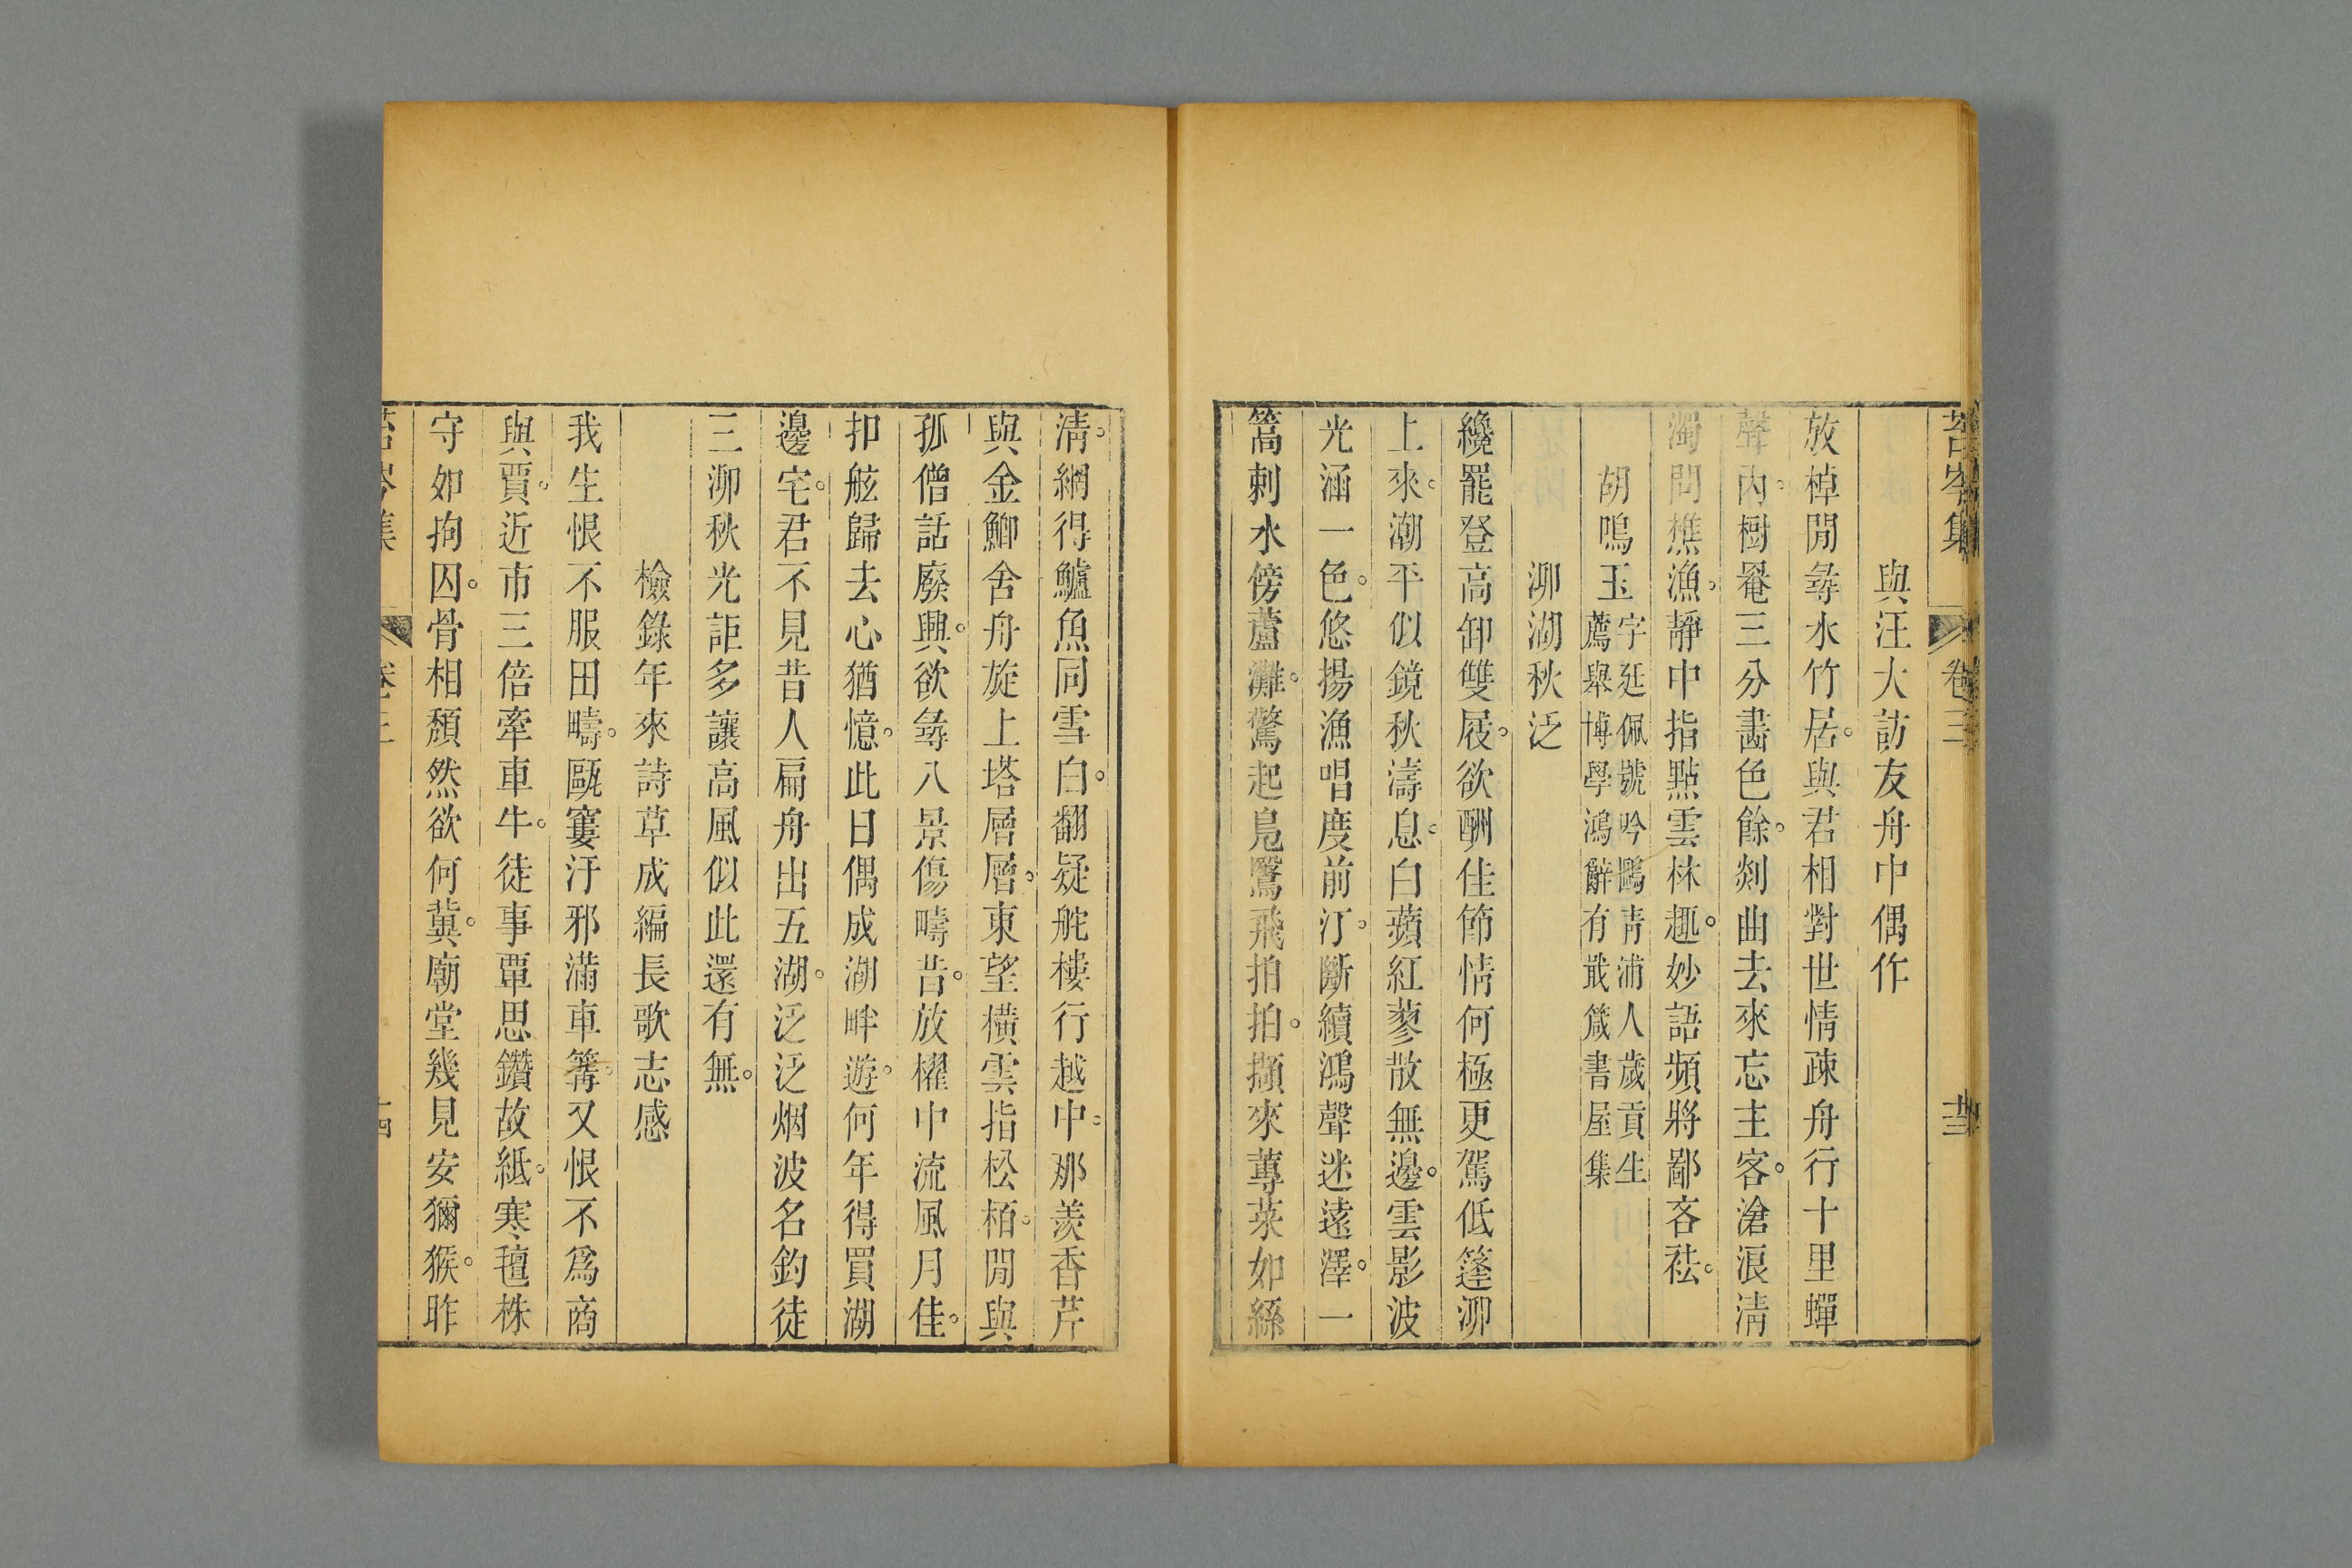 苔岑集 卷三 十三
與汪大訪友舟中偶作
放棹閒尋水竹居。與君相對世情疎舟行十里蟬
聲內。樹罨三分畵色餘。剡曲去來忘主客。滄浪淸
濁問樵漁。靜中指點雲林趣。妙語頻將鄙吝袪。
胡鳴玉字廷佩號吟鷗靑浦人歲貢生
薦舉博學鴻辭有戢箴書屋集
泖湖秋泛
纔罷登高卸雙屐。欲酬佳節情何極更駕低篷泖
上來。潮平似鏡秋濤息。白蘋紅蓼散無邊。雲影波
光涵一色。悠揚漁唱度前汀。斷續鴻聲迷遠澤。一
篙刺水傍蘆灘。驚起鳧鷖飛拍拍。擷來蓴菜如絲
淸。網得鱸魚同雪白。翻疑舵樓行越中。那羨香芹
與金鯽舍舟旋上塔層層。東望橫雲指松栢。閒與
孤僧話廢興。欲尋八景傷疇昔。放櫂中流風月佳。
扣舷歸去心猶憶。此日偶成湖畔遊。何年得買湖
邊宅。君不見昔人扁舟出五湖。泛泛烟波名釣徒
三泖秋光詎多讓高風似此還有無。
檢錄年來詩草成編長歌志感
我生恨不服田疇。甌窶汙邪滿車篝。又恨不爲商
與賈。近市三倍牽車牛。徒事覃思鑽故紙。寒氊株
守如拘囚。骨相頽然欲何冀。廟堂幾見安獼猴。昨
苔岑集 卷三 十四